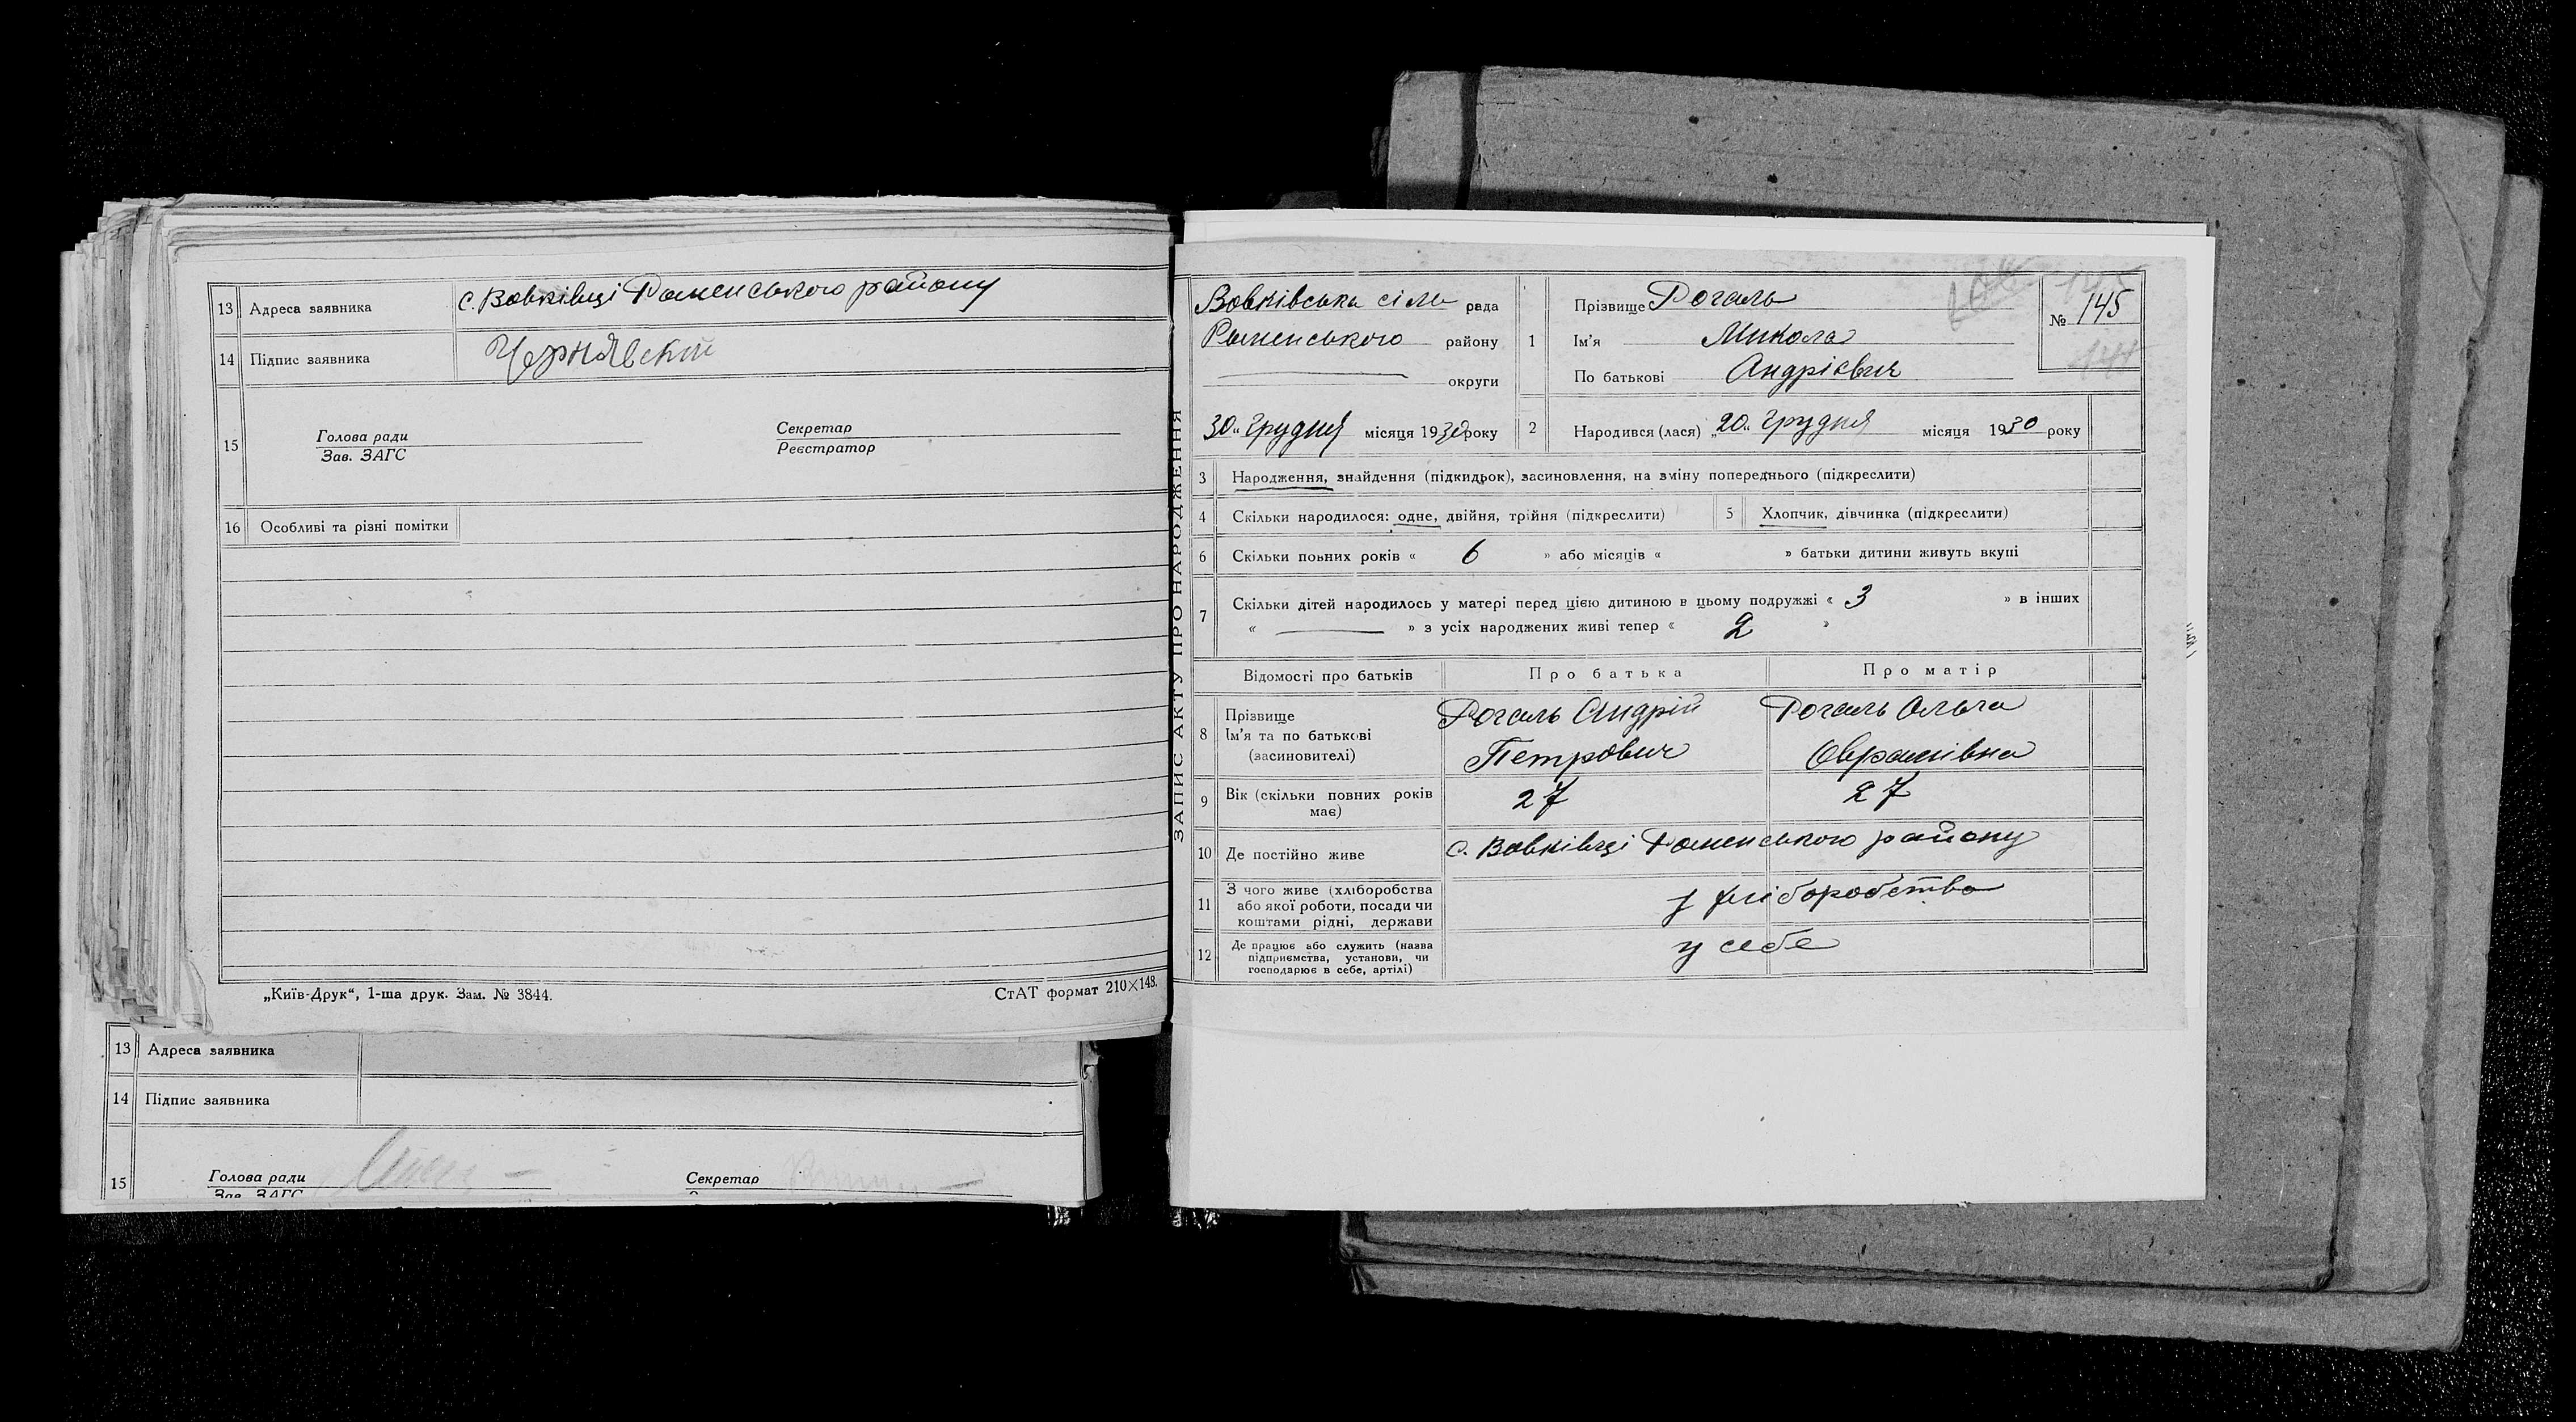 13 Адреса заявника с. Вовківці Роменського району
14 Підпис заявника Чернявский
15 Голова ради Секретар
Зав. ЗАГС Реєстратор
16 Особливі та різні помітки
„Київ-Друк“, 1-ша друк. Зам. № 3844. СтАТ формат 210×148.
13 Адреса заявника
14 Підпис заявника
15 Голова ради Секретар
Зав. ЗАГС
ЗАПИС АКТУ ПРО НАРОДЖЕННЯ
Вовківська сіль рада
Роменського району
округи
30 „ грудня місяця 1930 року
1 Прізвище Рогаль
Ім’я Микола
По батькові Андрієвич
№ 145
2 Народився (лася) „20„ грудня місяця 1930 року
3 Народження, знайдення (підкидьок), засиновлення, на зміну попереднього (підкреслити)
4 Скільки народилося: одне, двійня, трійня (підкреслити) 5 Хлопчик, дівчинка (підкреслити)
6 Скільки повних років « 6 » або місяців « » батьки дитини живуть вкупі
7 Скільки дітей народилось у матері перед цією дитиною в цьому подружжі « 3 » в інших
« — » з усіх народжених живі тепер « 2 »
Відомості про батьків Про батька Про матір
8 Прізвище Рогаль Андрій Рогаль Ольга
Ім’я та по батькові Петрович Оврамівна
(засиновителі)
9 Вік (скільки повних років 27 27
має)
10 Де постійно живе с. Вовківці Роменського району
11 З чого живе (хліборобства з хліборобства
або якої роботи, посади чи
коштами рідні, держави
12 Де працює або служить (назва у себе
підприємства, установи, чи
господарює в себе, артілі)